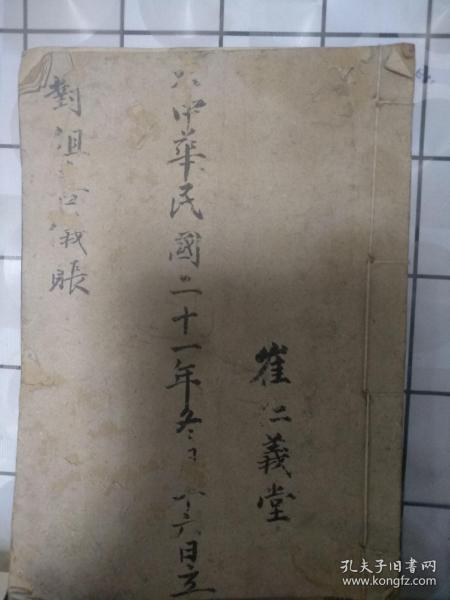 崔仁義堂
中華民國二十一年冬月十六日立
對
賬
孔夫子旧书网
www.kongfz.com